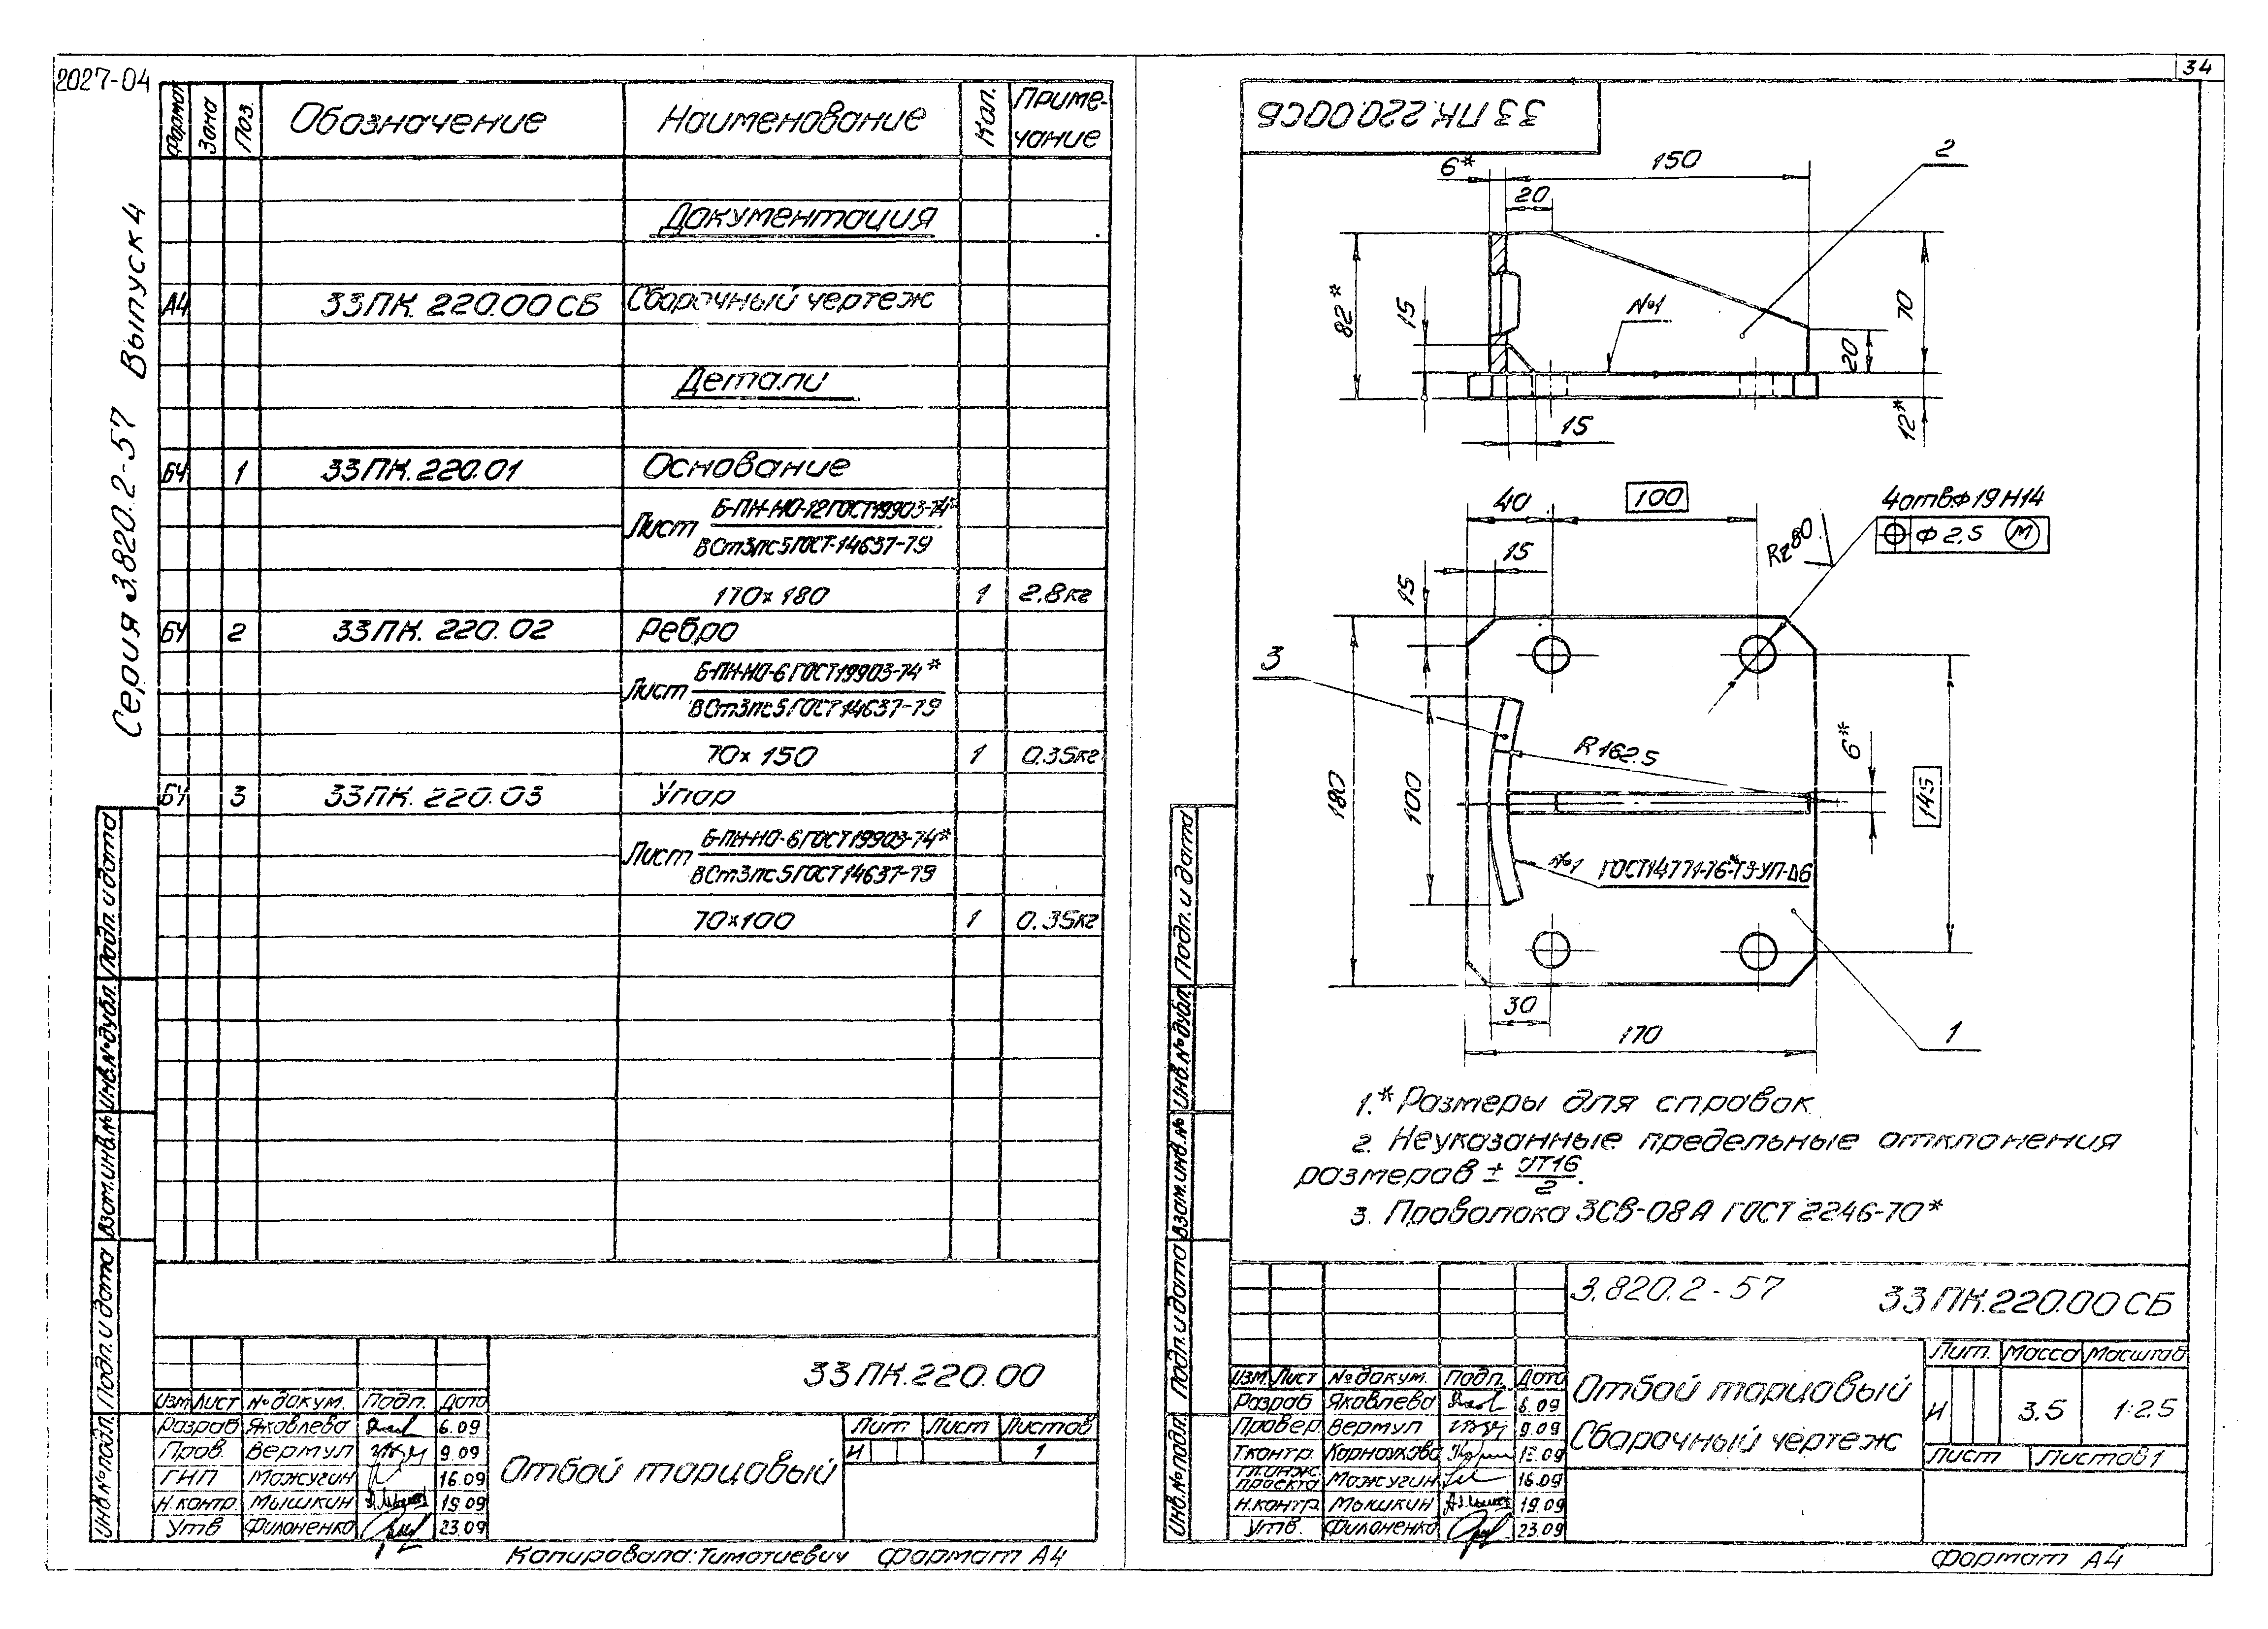 2027-04
Серия 3.820.2-57 Выпуск 4
Формат Зона Поз. Обозначение Наименование Кол. Приме-
чание
Документация
А4 33ПК.220.00СБ Сборочный чертеж
Детали
БЧ 1 33ПК.220.01 Основание
Б-ПН-НО-12 ГОСТ 19903-74*
Лист
ВСт3пс5 ГОСТ 14637-79
170×180 1 2.8кг
БЧ 2 33ПК.220.02 Ребро
Б-ПН-НО-6 ГОСТ 19903-74*
Лист
ВСт3пс5 ГОСТ 14637-79
70×150 1 0.35кг
БЧ 3 33ПК.220.03 Упор
Б-ПН-НО-6 ГОСТ 19903-74*
Лист
ВСт3пс5 ГОСТ 14637-79
70×100 1 0.35кг
Подп. и дата
Инв.№дубл.
Взам.инв.№
Подп. и дата
Инв.№подл.
33ПК.220.00
Изм. Лист № докум. Подп. Дата
Разраб Яковлева 6.09
Пров. Вермул 9.09
ГИП Мажугин 16.09
Н.контр. Мышкин 19.09
Утв Филоненко 23.09
Отбой торцовый
Лит Лист Листов
И 1
Копировала: Тимотиевич Формат А4
34
33ПК.220.00СБ
6*
150
2
20
82*
15
№1
70
20
12*
15
40
100
4отв.Ф19Н14
Ф2.5 М
Rz80
15
15
3
180
100
R162.5
6*
145
№1 ГОСТ14771-76*-Т3-УП-Δ6
30
170
1
1.* Размеры для справок
2. Неуказанные предельные отклонения
размеров ± IT16/2.
3. Проволока 3СВ-08А ГОСТ 2246-70*
Подп. и дата
Инв.№дубл.
Взам.инв.№
Подп. и дата
Инв.№подл.
3.820.2-57
33ПК.220.00СБ
Изм. Лист № докум. Подп. Дата
Разраб Яковлева 6.09
Провер. Вермул 9.09
Т.контр. Карнаухова 13.09
Гл.инж.
проекта Мажугин 16.09
Н.контр. Мышкин 19.09
Утв. Филоненко 23.09
Отбой торцовый
Сборочный чертеж
Лит. Масса Масштаб
И 3.5 1:2.5
Лист Листов 1
Формат А4